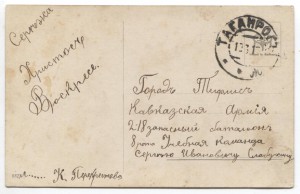 Сергѣй
Христосъ
Воскресе.
ТАГАНРОГЪ
Городъ Тифлисъ
Кавказская Армія
218 запасный баталіонъ
8 рота Учебная Команда
Сергѣю Ивановичу
К.